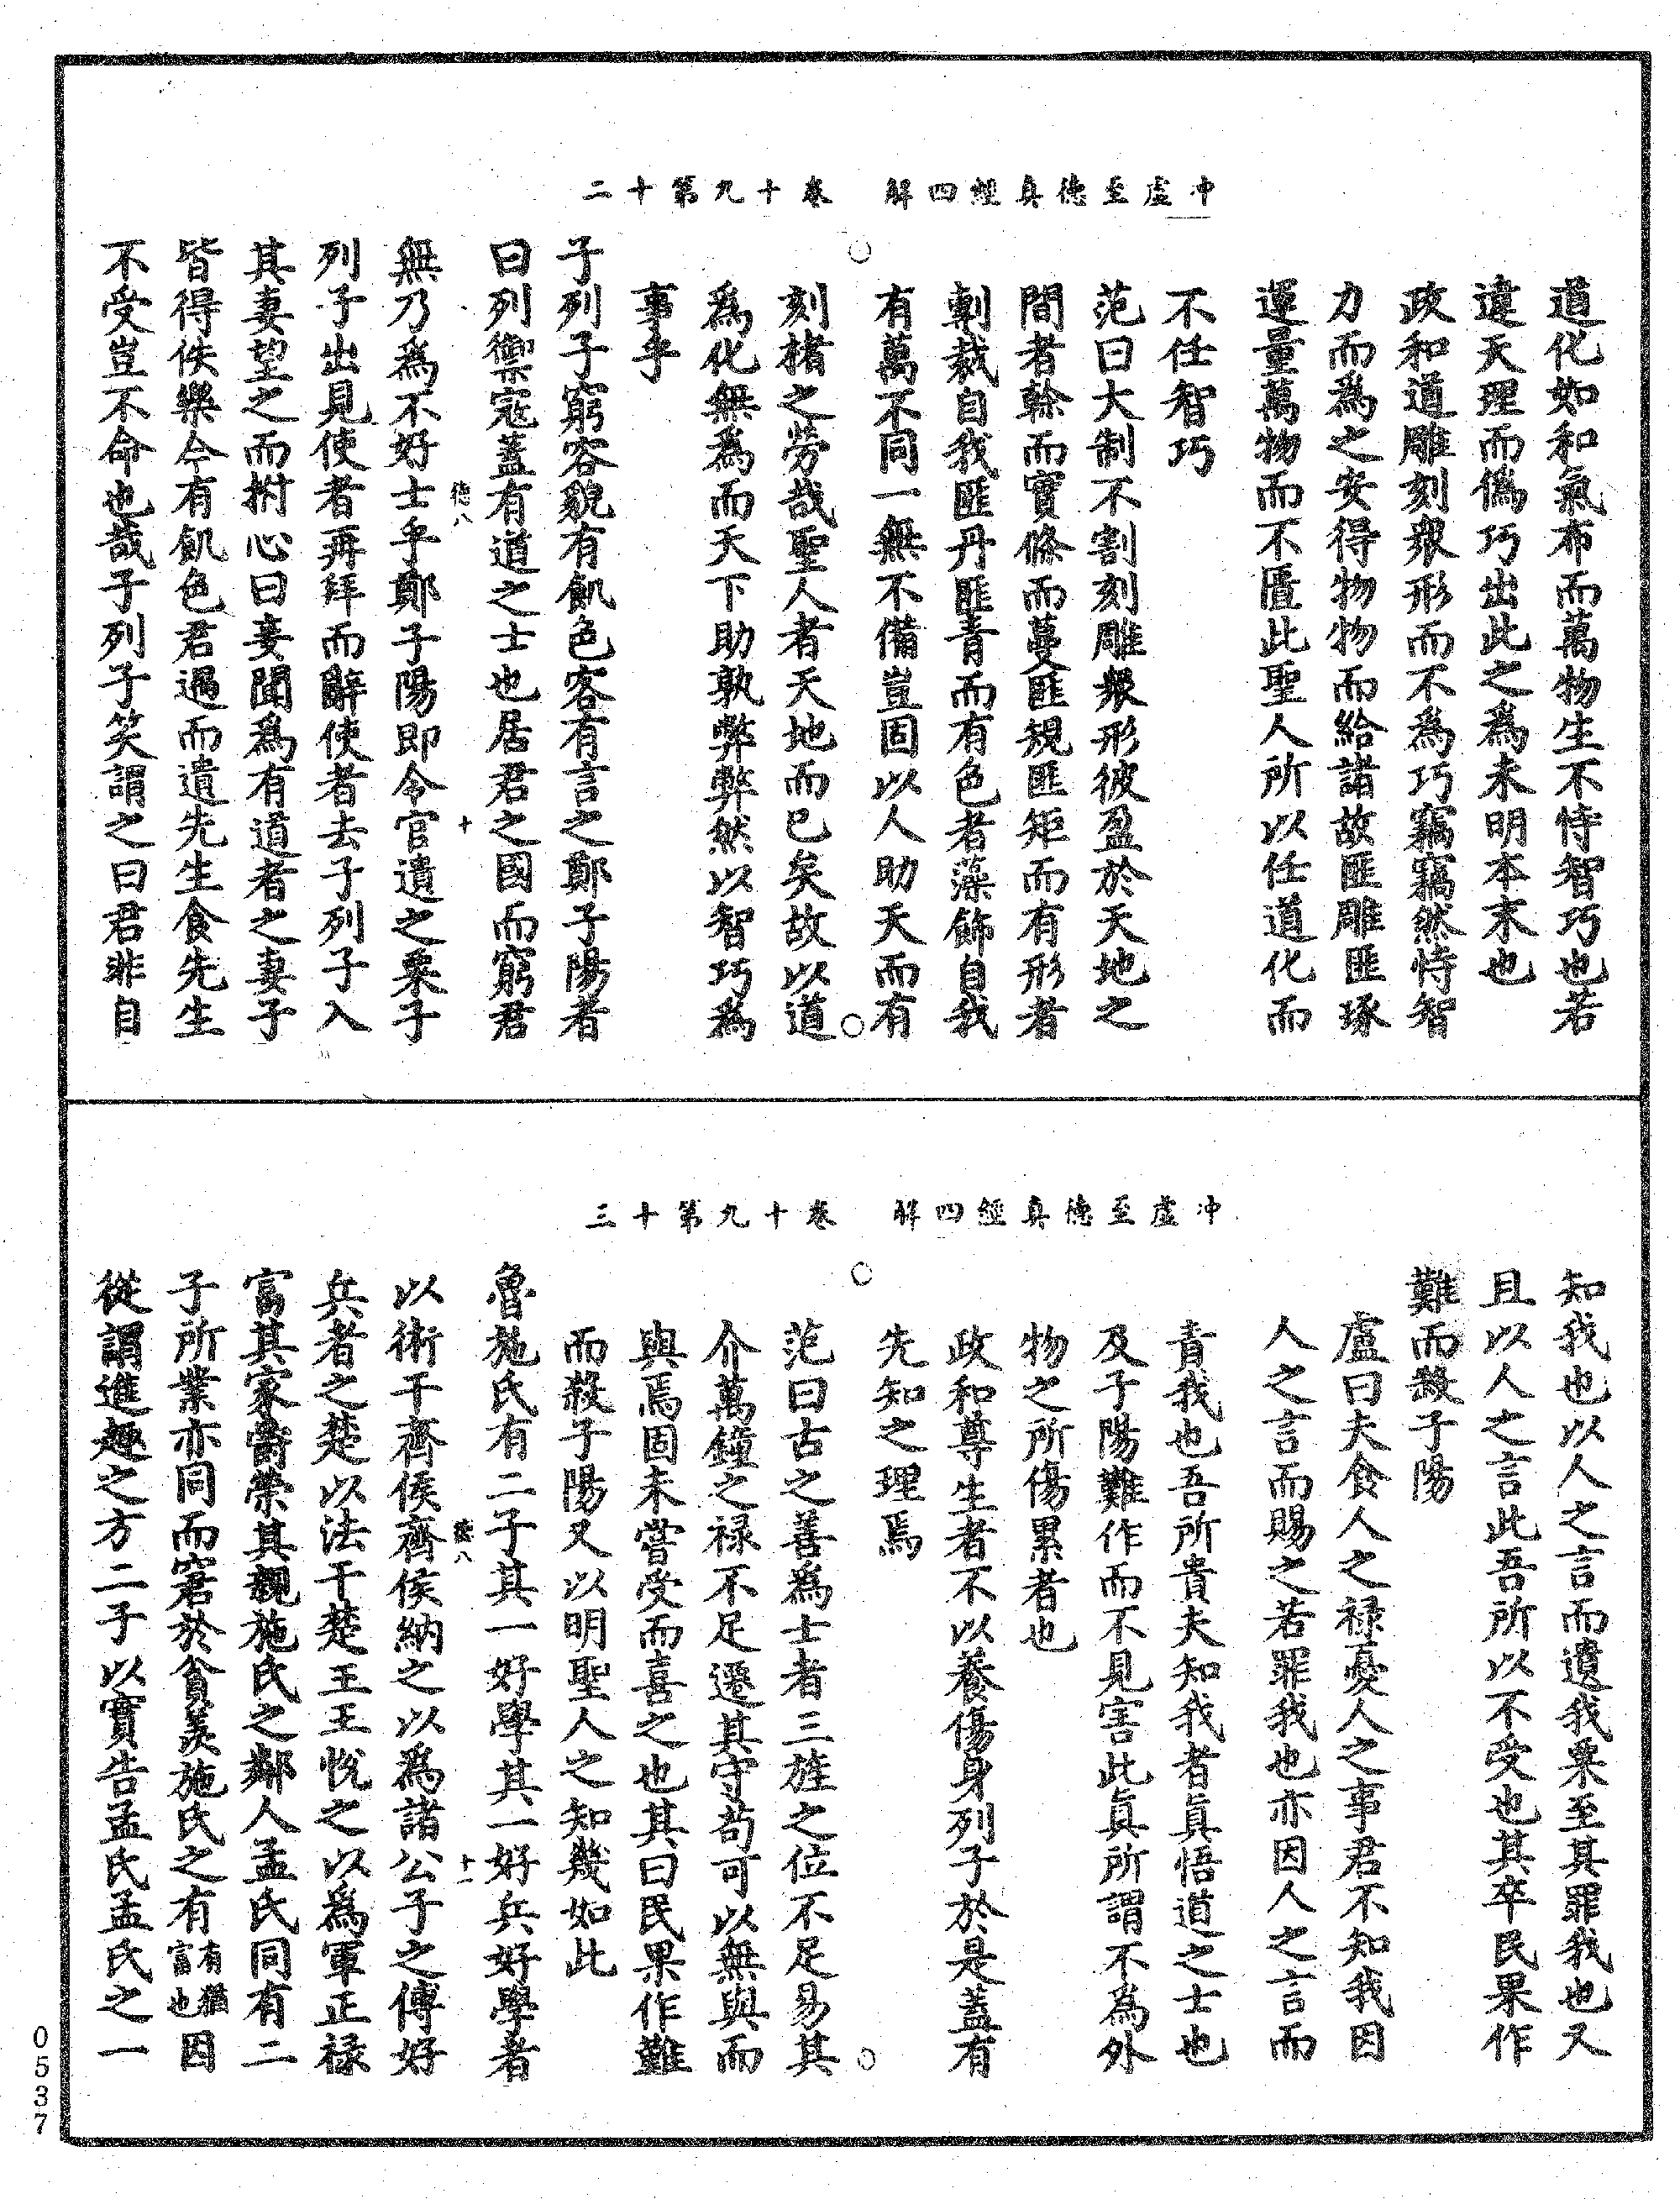 冲虛至德真經四解　卷十九第十二
道化如和氣布而萬物生不恃智巧也若
違天理而僞巧出此之爲未明本末也
政和道雕刻衆形而不爲巧竊竊然恃智
力而爲之安得物物而給諸故匪雕匪琢
運量萬物而不匱此聖人所以任道化而
不任智巧
范曰大制不割刻雕衆形彼盈於天地之
間者榦而實條而蔓匪規匪矩而有形者
剸裁自我匪丹匪青而有色者藻飾自我
有萬不同一無不備豈固以人助天而有
刻楮之勞哉聖人者天地而已矣故以道
爲化無爲而天下助孰弊弊然以智巧爲
事乎
子列子窮容貌有飢色客有言之鄭子陽者
曰列禦寇蓋有道之士也居君之國而窮君
德八　十
無乃爲不好士乎鄭子陽即令官遺之粟子
列子出見使者再拜而辭使者去子列子入
其妻望之而拊心曰妾聞爲有道者之妻子
皆得佚樂今有飢色君過而遺先生食先生
不受豈不命也哉子列子笑謂之曰君非自
冲虛至德真經四解　卷十九第十三
知我也以人之言而遺我粟至其罪我也又
且以人之言此吾所以不受也其卒民果作
難而殺子陽
盧曰夫食人之祿憂人之事君不知我因
人之言而賜之若罪我也亦因人之言而
責我也吾所貴夫知我者真悟道之士也
及子陽難作而不見害此真所謂不為外
物之所傷累者也
政和尊生者不以養傷身列子於是蓋有
先知之理焉
范曰古之善爲士者三旌之位不足易其
介萬鐘之祿不足遷其守苟可以無與而
與焉固未嘗受而喜之也其曰民果作難
而殺子陽又以明聖人之知幾如此
魯施氏有二子其一好學其一好兵好學者
德八　十一
以術干齊侯齊侯納之以爲諸公子之傅好
兵者之楚以法干楚王王悅之以爲軍正祿
富其家爵榮其親施氏之鄰人孟氏同有二
子所業亦同而窘於貧羡施氏之有有猶富也因
從謂進趣之方二子以實告孟氏孟氏之一
0537